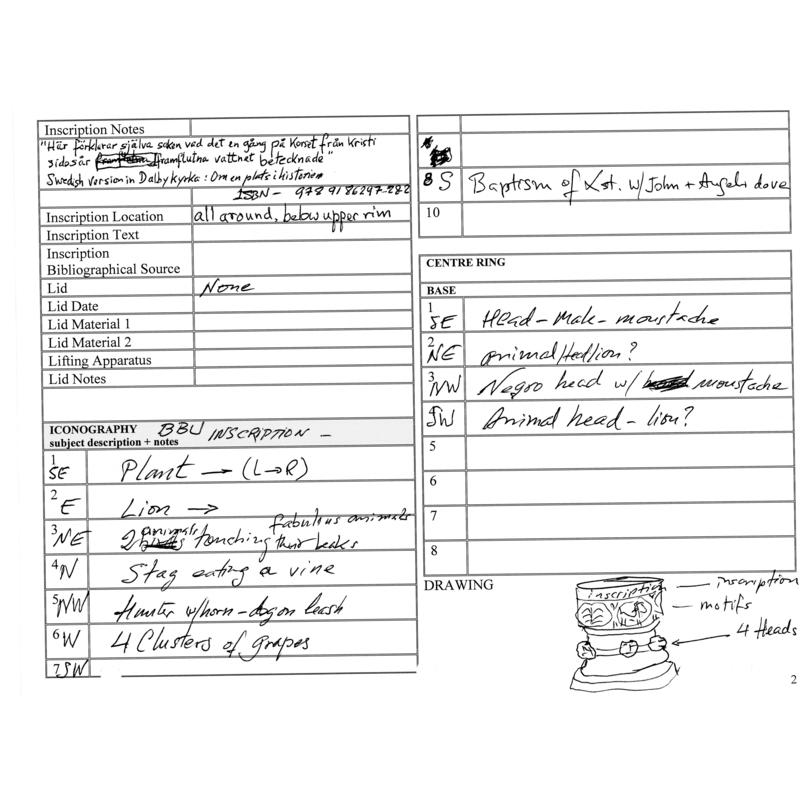 Inscription Notes
"Här förklarar själva saken vad det en gång på Korset från Kristi
sidosår framflutna vattnet betecknade"
Swedish version in Dalby kyrka: Om en plats i historien
ISBN - 978 9186247-282
Inscription Location all around, below upper rim
Inscription Text
Inscription
Bibliographical Source
Lid None
Lid Date
Lid Material 1
Lid Material 2
Lifting Apparatus
Lid Notes
ICONOGRAPHY BBU INSCRIPTION -
subject description + notes
1 SE Plant → (L→R)
2 E Lion →
fabulous animals
3 NE 2 animals touching their beaks
4 N Stag eating a vine
5 NW Hunter w/horn - dog on leash
6 W 4 Clusters of grapes
7 SW
8 S Baptism of Xst. w/ John + Angel & dove
10
CENTRE RING
BASE
1 SE Head - Male - moustache
2 NE animal Head lion?
3 NW Negro head w/ moustache
SW Animal head - lion?
5
6
7
8
DRAWING
inscription
inscription
motifs
4 Heads
2